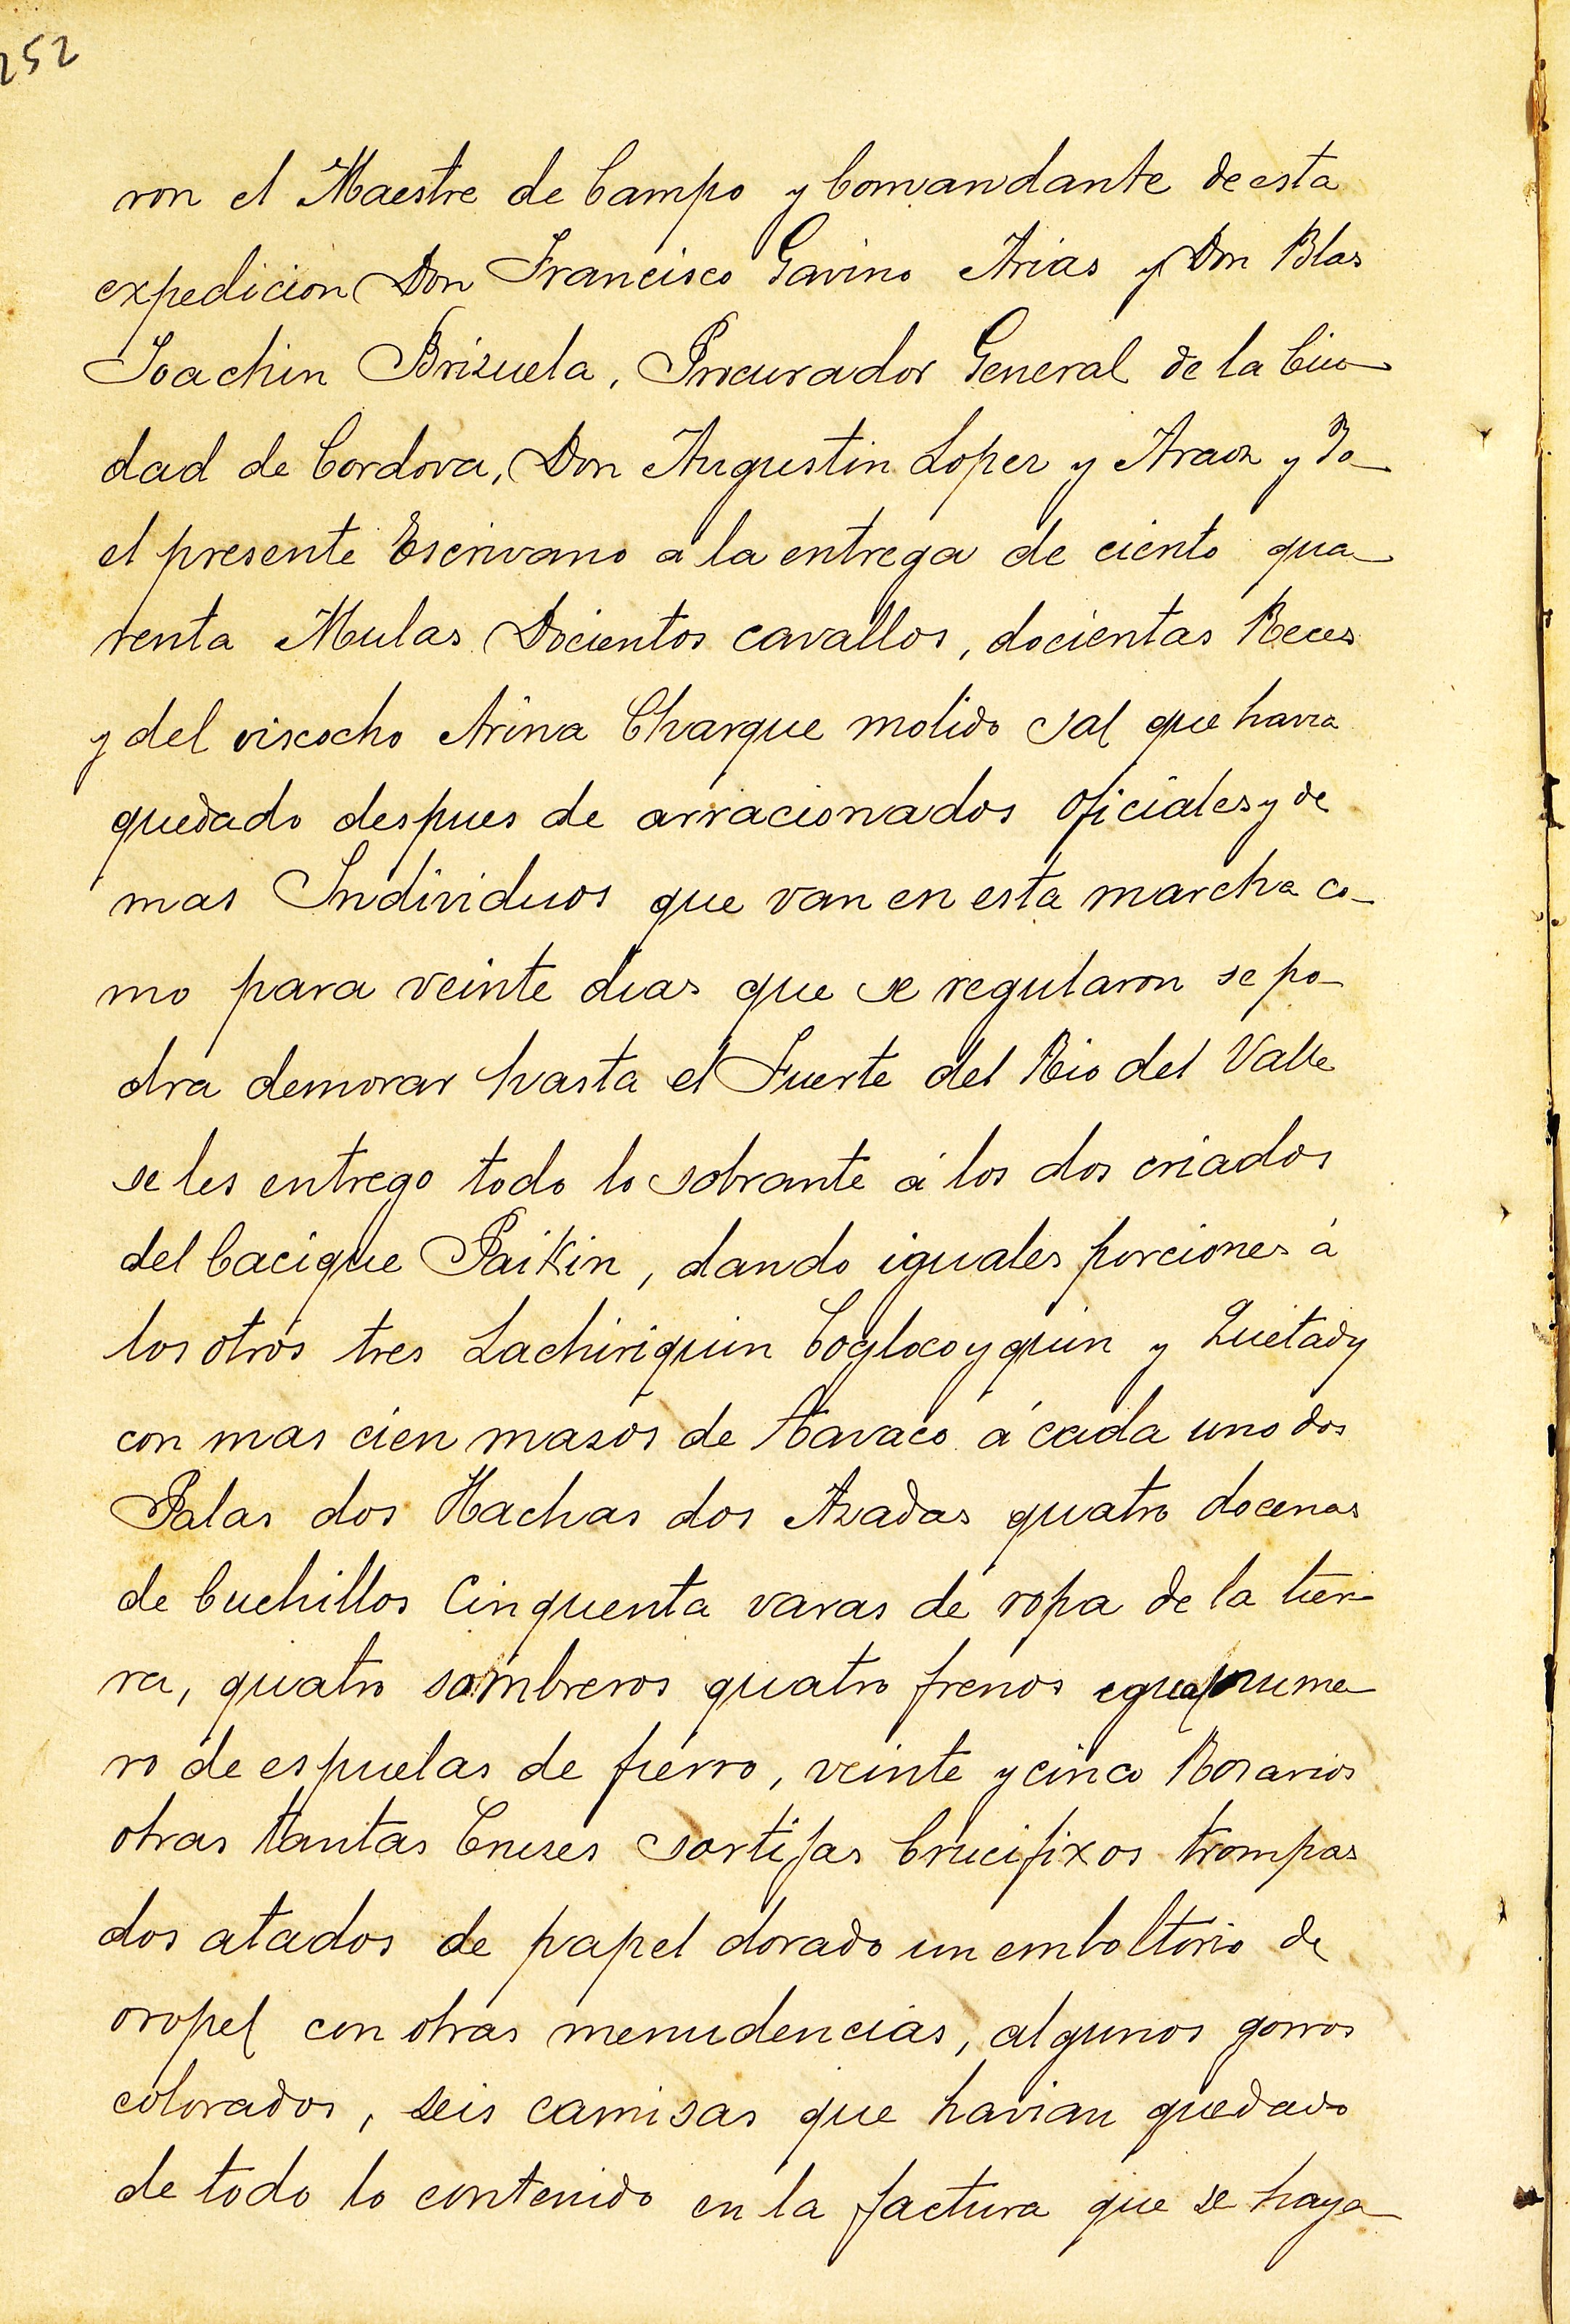 252
ron el Maestre de Campo y Comandante de esta
expedicion Don Francisco Gavino Arias y Don Blas
Joachin Brizuela, Procurador General de la Ciu-
dad de Cordova, Don Augustin Lopez y Araoz y Yo
el presente Escrivano a la entrega de ciento qua-
renta Mulas Docientos cavallos, docientas Reces
y del viscocho Arina Charque molido Sal que havia
quedado despues de arracionados oficiales y de
mas Individuos que van en esta marcha co-
mo para veinte dias que se regularon se po-
dra demorar hasta el Fuerte del Rio del Valle
se les entrego todo lo sobrante á los dos criados
del Cacique Paikin, dando iguales porciones á
los otros tres Lachiriquin Coglocoyquin y Quetady
con mas cien masos de Tavaco á cada uno dos
Palas dos Hachas dos Azadas quatro docenas
de Cuchillos Cinquenta varas de ropa de la tier-
ra, quatro sombreros quatro frenos egual nume-
ro de espuelas de fierro, veinte y cinco Rosarios
otras tantas Cruses sortijas Crucifixos trompas
dos atados de papel dorado un emboltorio de
oropel con otras menudencias, algunos gorros
colorados, seis camisas que havian quedado
de todo lo contenido en la factura que se haya